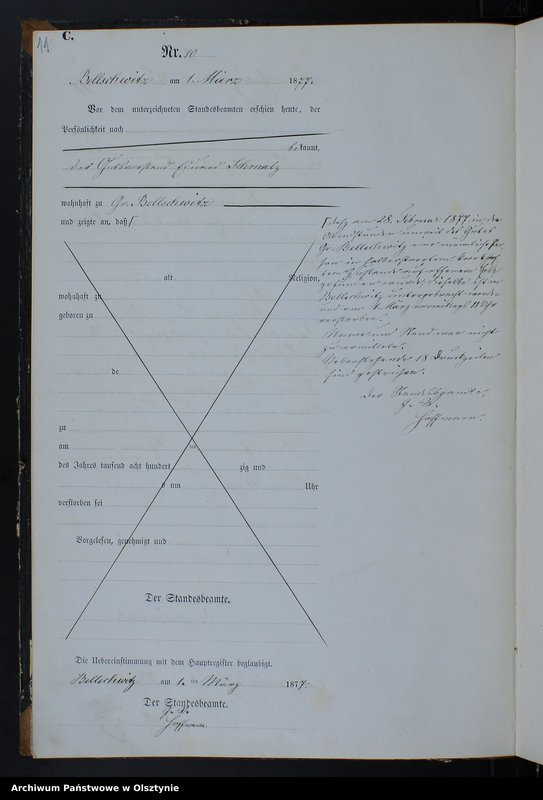 11
C.
Nr. 10
Bellschwitz am 1. März 1877.
Vor dem unterzeichneten Standesbeamten erschien heute, der
Persönlichkeit nach
bekannt,
der Gutsvorstand Eduard Schmalz
wohnhaft zu Gr. Bellschwitz
und zeigte an, daß
alt Religion,
wohnhaft zu
geboren zu
de
zu
am ten
des Jahres tausend acht hundert zig und
s um Uhr
verstorben sei
Vorgelesen, genehmigt und
Der Standesbeamte.
daß am 28. Februar 1877 in den
Abendstunden unweit des Gutes
Gr. Bellschwitz eine männliche Per-
son in halberstarrtem
Zustande auf offenem Felde
gefunden worden, dieselbe ist in
Bellschwitz untergebracht worden
und am 1. März vormittags 11 Uhr
verstorben.
Name und Stand war nicht
zu ermitteln.
Nebenstehende 18 Druckzeilen
sind gestrichen.
Der Standesbeamte.
Hoffmann.
Die Uebereinstimmung mit dem Hauptregister beglaubigt.
Bellschwitz am 1. ten März 1877.
Der Standesbeamte.
Hoffmann.
Archiwum Państwowe w Olsztynie